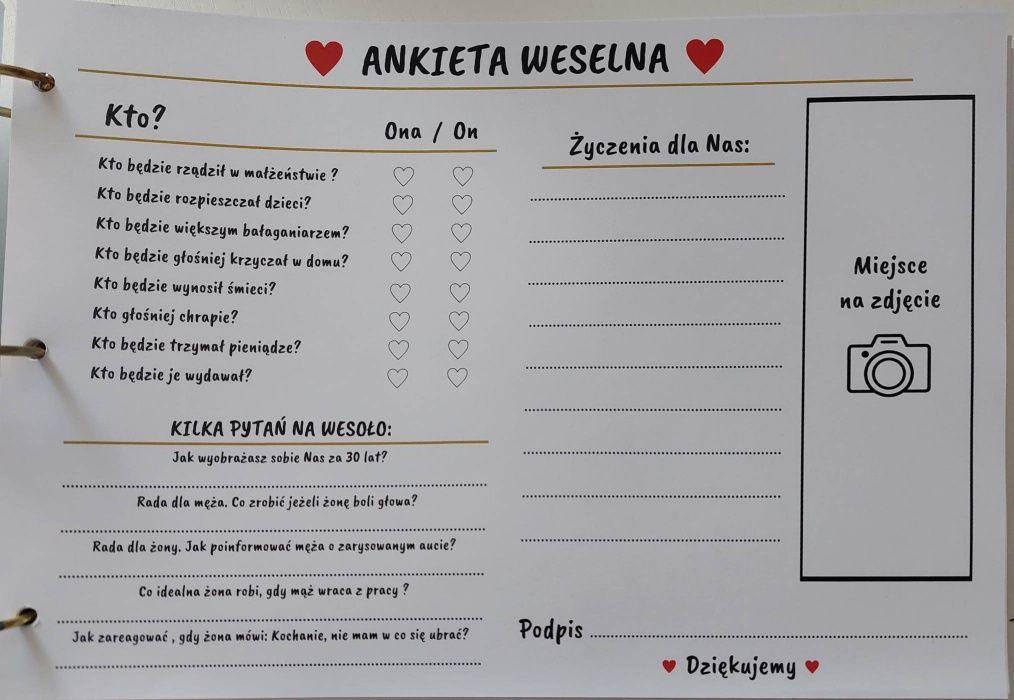 ANKIETA WESELNA
Kto?
Ona / On
Kto będzie rządził w małżeństwie ?
Kto będzie rozpieszczał dzieci?
Kto będzie większym bałaganiarzem?
Kto będzie głośniej krzyczał w domu?
Kto będzie wynosił śmieci?
Kto głośniej chrapie?
Kto będzie trzymał pieniądze?
Kto będzie je wydawał?
KILKA PYTAŃ NA WESOŁO:
Jak wyobrażasz sobie Nas za 30 lat?
Rada dla męża. Co zrobić jeżeli żonę boli głowa?
Rada dla żony. Jak poinformować męża o zarysowanym aucie?
Co idealna żona robi, gdy mąż wraca z pracy ?
Jak zareagować , gdy żona mówi: Kochanie, nie mam w co się ubrać?
Życzenia dla Nas:
Miejsce
na zdjęcie
Podpis
Dziękujemy